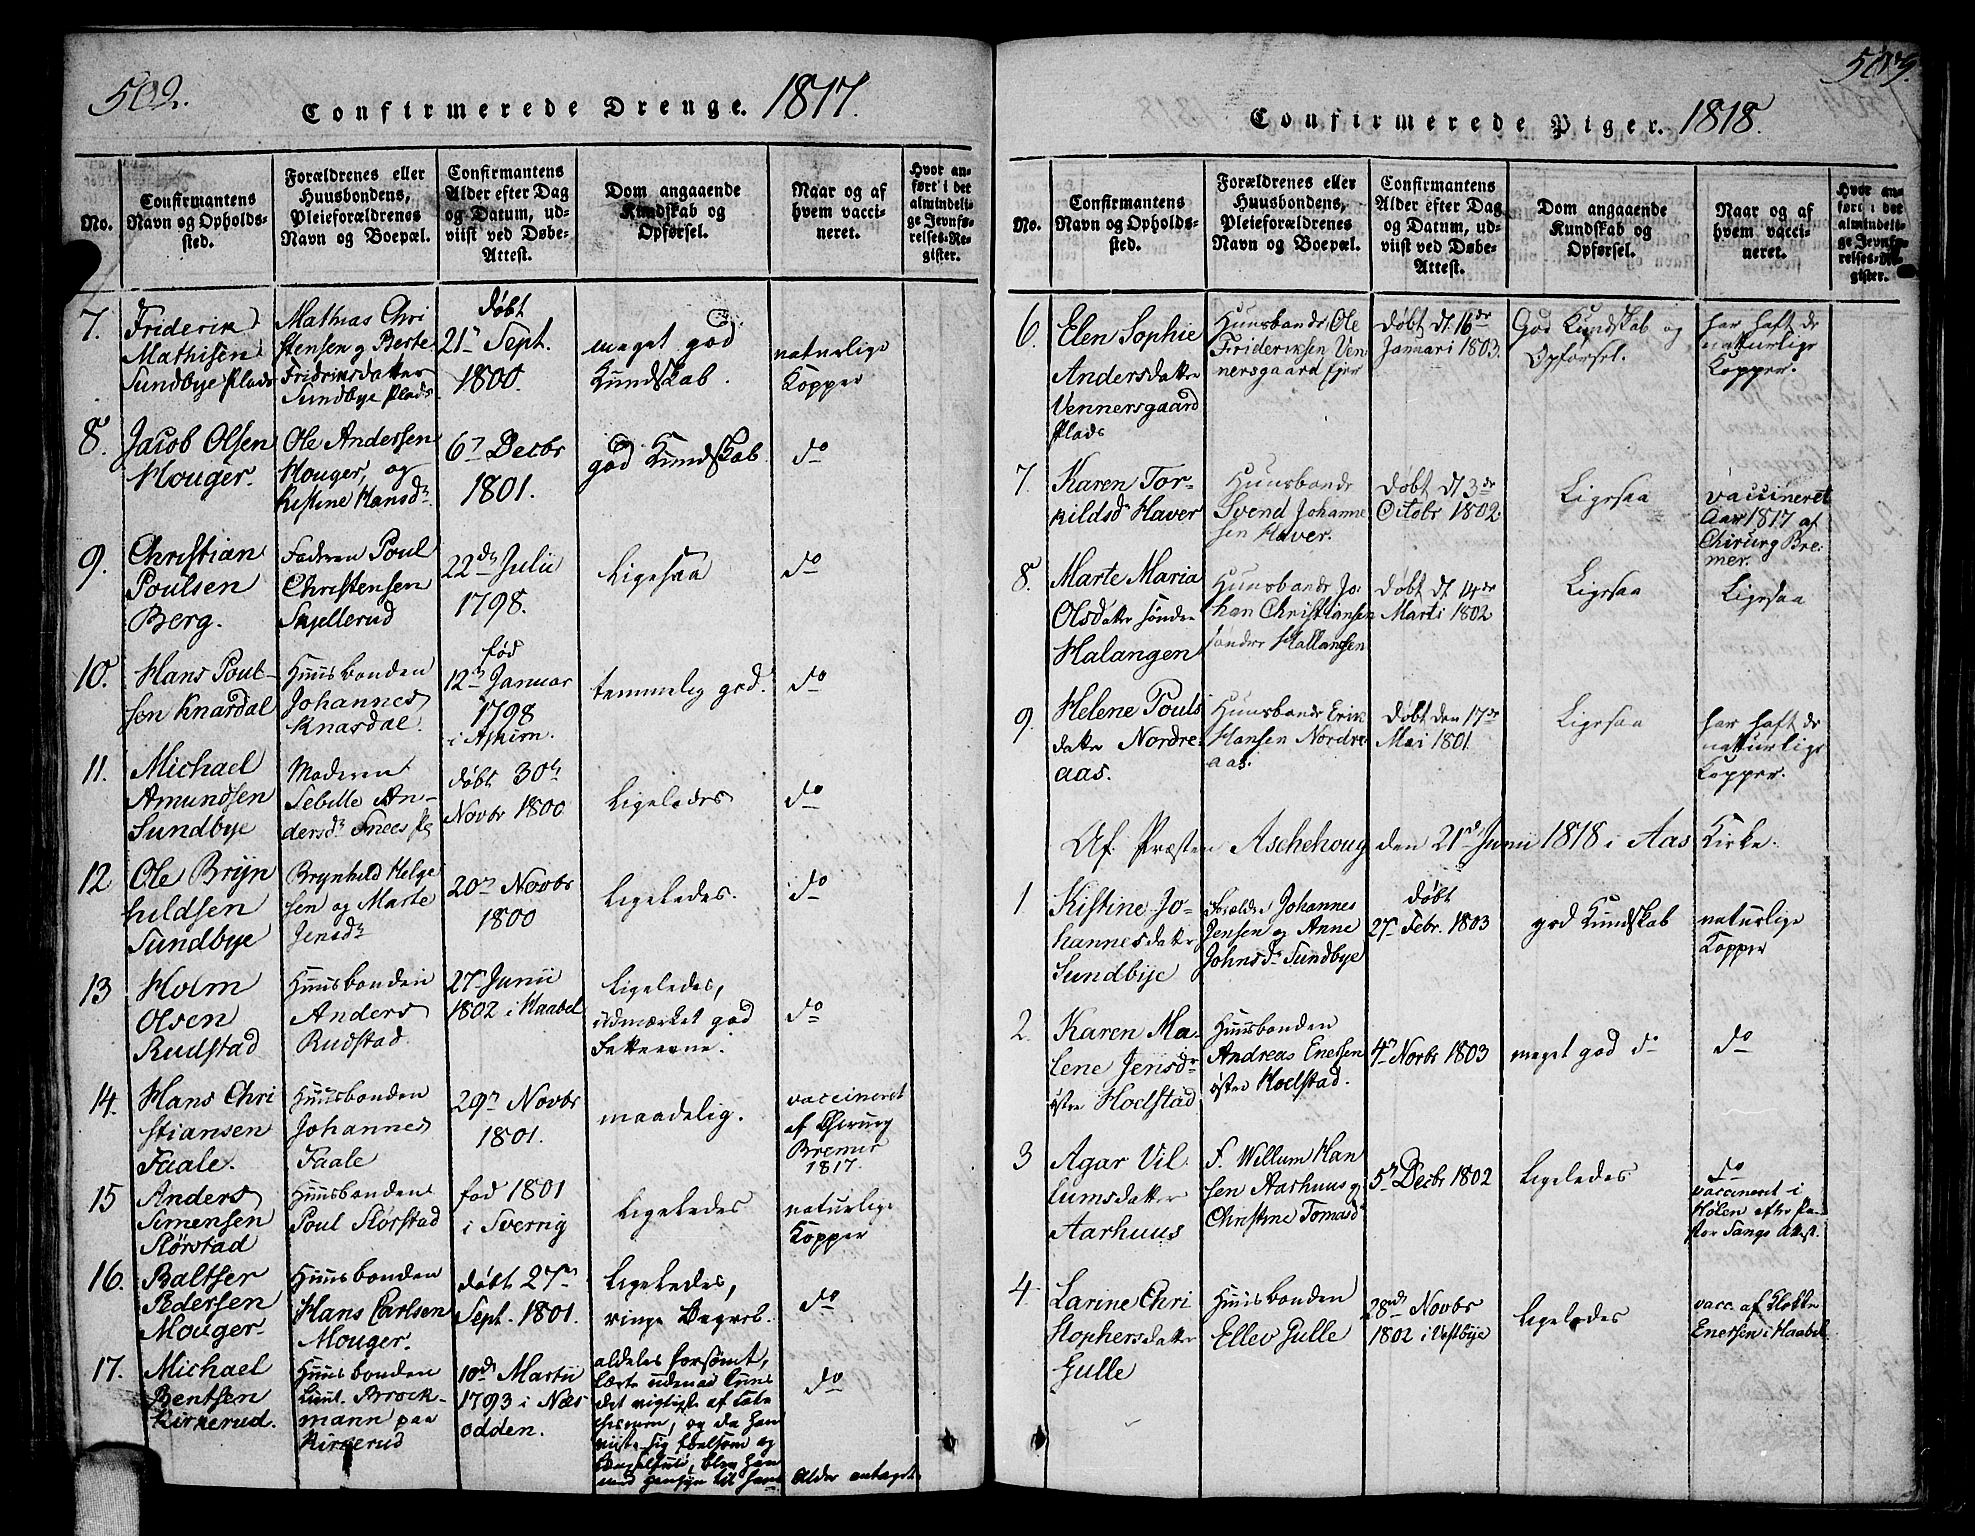 502.
Confirmerede Drenge. 1817.
No.
Confirmantens
Navn og Opholds-
sted.
Forældrenes eller
Huusbondens,
Pleieforældrenes
Navn og Boepæl.
Confirmantens
Alder efter Dag
og Datum, ud-
viist ved Døbe-
Attest.
Dom angaaende
Kundskab og
Opførsel.
Naar og af
hvem vacci-
neret.
Hvor an-
ført i det
almindeli-
ge Jevnfø-
relses-Re-
gister.
7.
Friderik
Mathisen
Sundbye Plads
Mathias Chri
stensen og Berte
Fridriksdatter
Sundbye Plads
døbt
21. Sept.
1800.
meget god
Kundskab.
naturlige
Kopper
8.
Jacob Olsen
Mouger.
Ole Andersen
Mouger, og
Kistine Hansdr
6. Decbr
1801.
god Kundskab
do
9.
Christian
Poulsen
Berg.
Faderen Poul
Christensen
Skjellerud
22d Julii
1798.
Ligesaa
do
10.
Hans Poul-
sen Knardal
Huusbonden
Johannes
Knardal.
fød
12. Januar
1798
i Askim.
temmelig god.
do
11.
Michael
Amundsen
Sundbye
Moderen
Sebille An-
dersdr Snees
døbt 30
Novbr 1800
Ligeledes
do
12
Ole Bryn
hildsen
Sundbye
Brynhild Helge
sen og Marte
Jensdr
20 Novbr
1800
Ligeledes.
do
13
Holm
Olsen
Rudstad
Huusbonden
Anders
Rudstad.
27 Junii
1802 i Haabel
Ligeledes,
udmærket god
Fatteevne.
do
14.
Hans Chri
stiansen
Faale.
Huusbonden
Johannes
Faale
29 Novbr
1801.
maadelig.
vaccineret
af Chirurg
Bremer
1817.
15
Anders
Simensen
Storstad
Huusbonden
Poul Storstad
fød 1801
i Sverrig
Ligeledes
naturlige
Kopper
16.
Baltser
Pedersen
Mouger
Huusbonden
Hans Carlsen
Mouger.
døbt 27
Sept. 1801.
Ligeledes,
ringe Begreb.
do
17.
Michael
Bentsen
Kirkerud.
Huusbonden
Lieut. Brock-
mann paa
Kirkerud
10d Martii
1793 i Næs
odden.
aldeles forsømt,
lærte udenad kuns
det vigtigste af Cate
chismen, og da han
viiste sig føelsom og
blev han
med Hensyn til hans
do
Alder antaget
503.
Confirmerede Piger. 1818.
No.
Confirmantens
Navn og Opholds-
sted.
Forældrenes eller
Huusbondens,
Pleieforældrenes
Navn og Boepæl.
Confirmantens
Alder efter Dag
og Datum, ud-
viist ved Døbe-
Attest.
Dom angaaende
Kundskab og
Opførsel.
Naar og af
hvem vacci-
neret.
Hvor an-
ført i det
almindeli-
ge Jevnfø-
relses-Re-
gister.
6.
Elen Sophie
Andersdatter
Vennersgaard
Plads
Huusbonde Ole
Frideriksen Ven
nersgaard Ejer
Døbt dt 16de
Januari 1803.
God Kundskab og
Opførsel.
har haft de
naturlige
Kopper.
7.
Karen Tor-
kildsdr Haver
Huusbonde
Svend Johanne
sen Haver.
Døbt dt 3de
Octobr 1802.
Ligesaa
vaccineret
Aar 1817 af
Chirurg Bre-
mer.
8.
Marte Maria
Olsdatter søndre
Halangen
Huusbonde Jo
han Christiansen
søndre Hallangen
Døbt dt 14de
Marti 1802
Ligesaa
Ligesaa
9.
Helene Pouls
datter Nordre
aas.
Huusbonde Erik
Hansen Nordre
aas.
Døbt den 17de
Mai 1801.
Ligesaa
har haft de
naturlige
Kopper.
Af Præsten Aschehoug den 21de Junii 1818 i Aas Kirke.
1
Kistine Jo-
hannesdatter
Sundbye
Forældre Johannes
Jensen og Anne
Johnsdr Sundbye
døbt
27 Febr. 1803
god Kundskab
naturlige
Kopper
2.
Karen Ma-
lene Jensdr
østre Hoelstad
Huusbonden
Andreas Enersen
østre Hoelstad.
4 Novbr 1803
meget god do
do
3
Agar Vil
lumsdatter
Aarhuus
F. Willum Han
sen Aarhuus og
Christine Tomasd
5 Decbr 1802
Ligeledes
do
vaccineret i
Hølen efter Pa-
stor Sangs Attest.
4.
Larine Chri
stophersdatter
Gulle
Huusbonden
Ellev Gulle
28de Novbr
1802 i Vestbye
Ligeledes
vacc. af Klokker
Enersen i Haabel